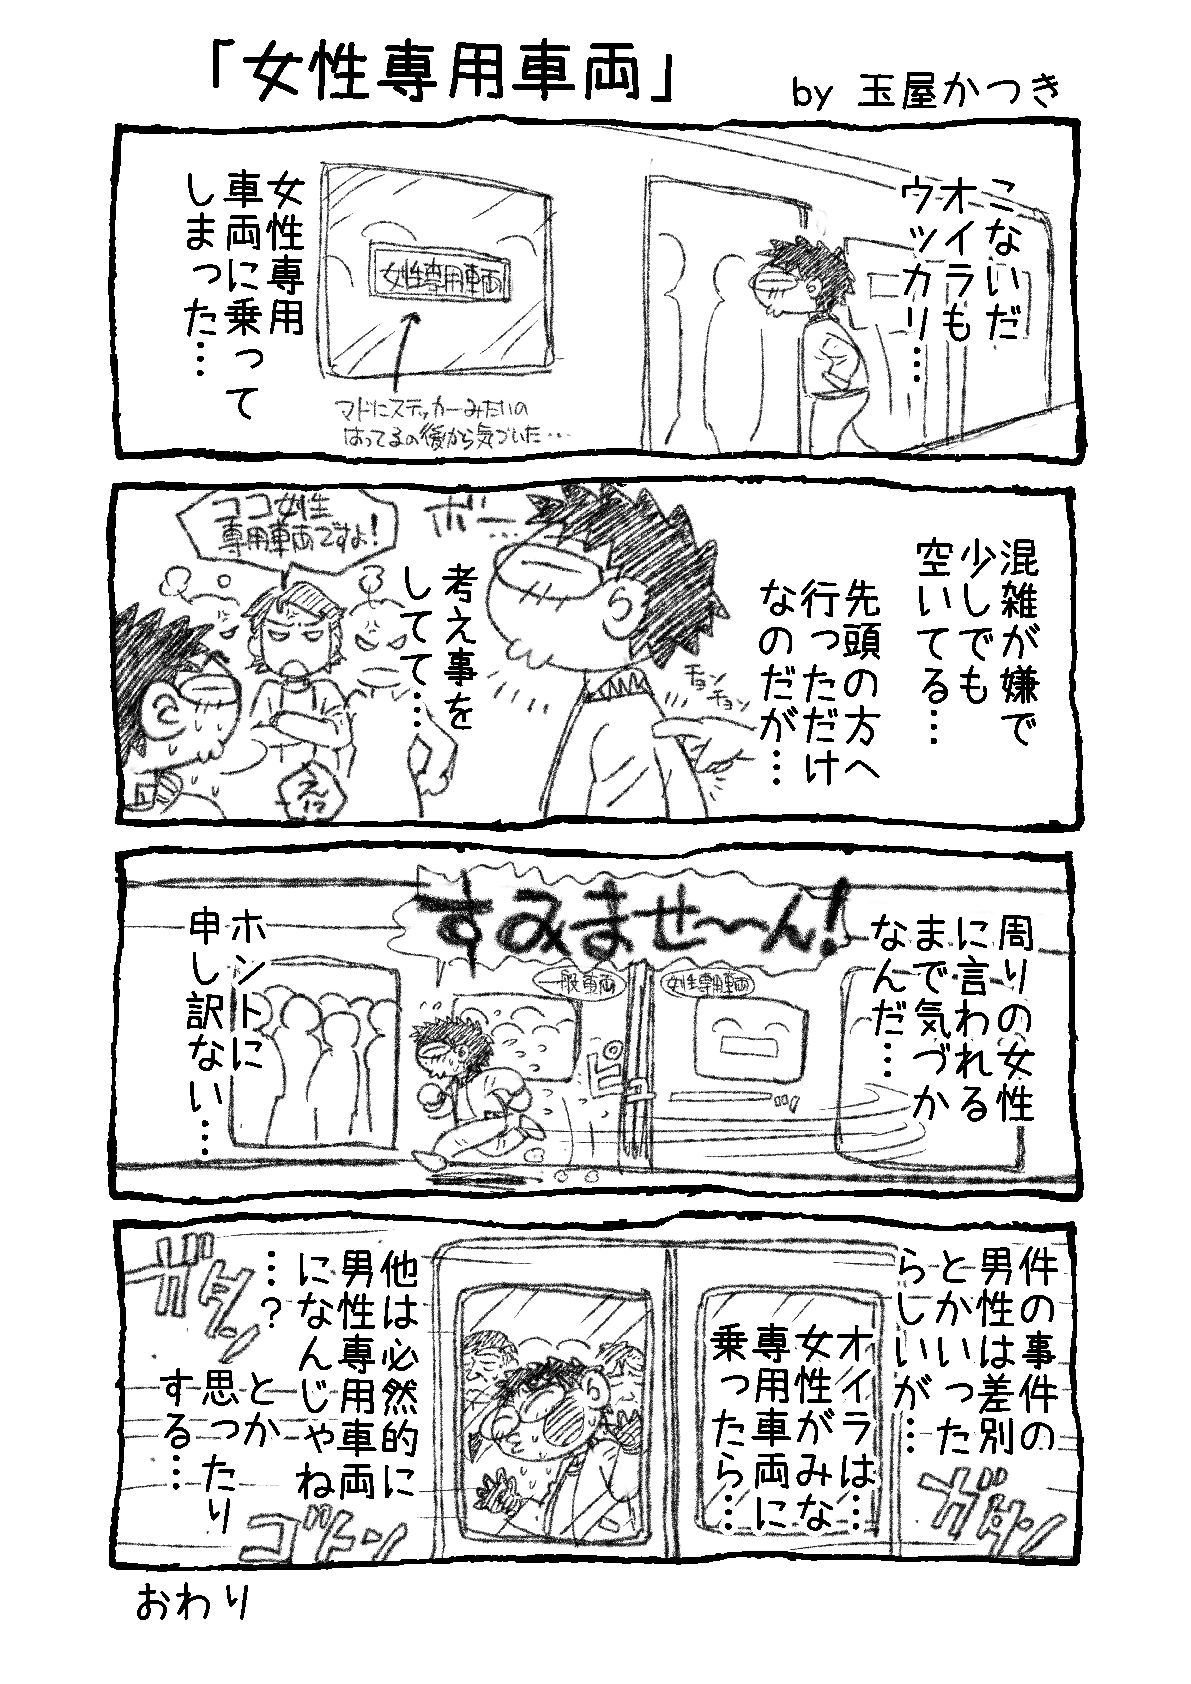 「女性専用車両」
by 玉屋かつき
こないだ
オイラも
ウッカリ…
女性専用車両
マドにステッカーみたいの
はってるの後から気づいた…
女性専用
車両に乗って
しまった…
混雑が嫌で
少しでも
空いてる…
先頭の方へ
行っただけ
なのだが…
チョン
チョン
ボー…
考え事を
してて…
ココ女性
専用車両ですよ!
えっ
周りの女性
に言われる
まで気づか
なんだ…
すみませ〜〜ん!
女性専用車両
一般車両
ピュー
ホントに
申し訳ない…
件の事件の
男性は差別
とかいった
らしいが…
オイラは…
女性がみな
専用車両に
乗ったら…
ガタン
他は必然的に
男性専用車両
になんじゃね
…?
とか
思ったり
する…
ガタン
ゴトン
おわり